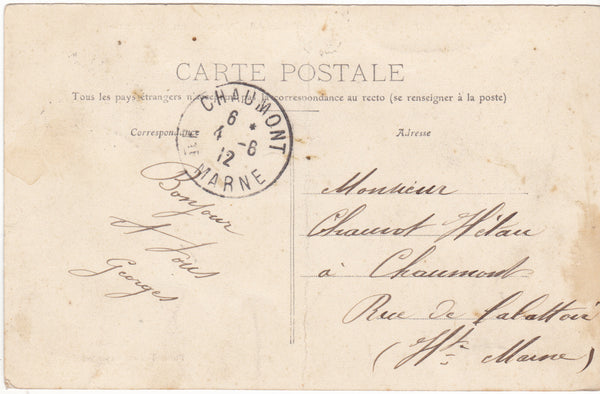 CARTE POSTALE
Tous les pays étrangers n'acceptent pas la correspondance au recto (se renseigner à la poste)
CHAUMONT
6 *
4 - 6
12
HTE MARNE
Correspondance
Adresse
Bonjour
A Tous
Georges
Monsieur
Chauvot
à Chaumont
Rue de
(Hte Marne)